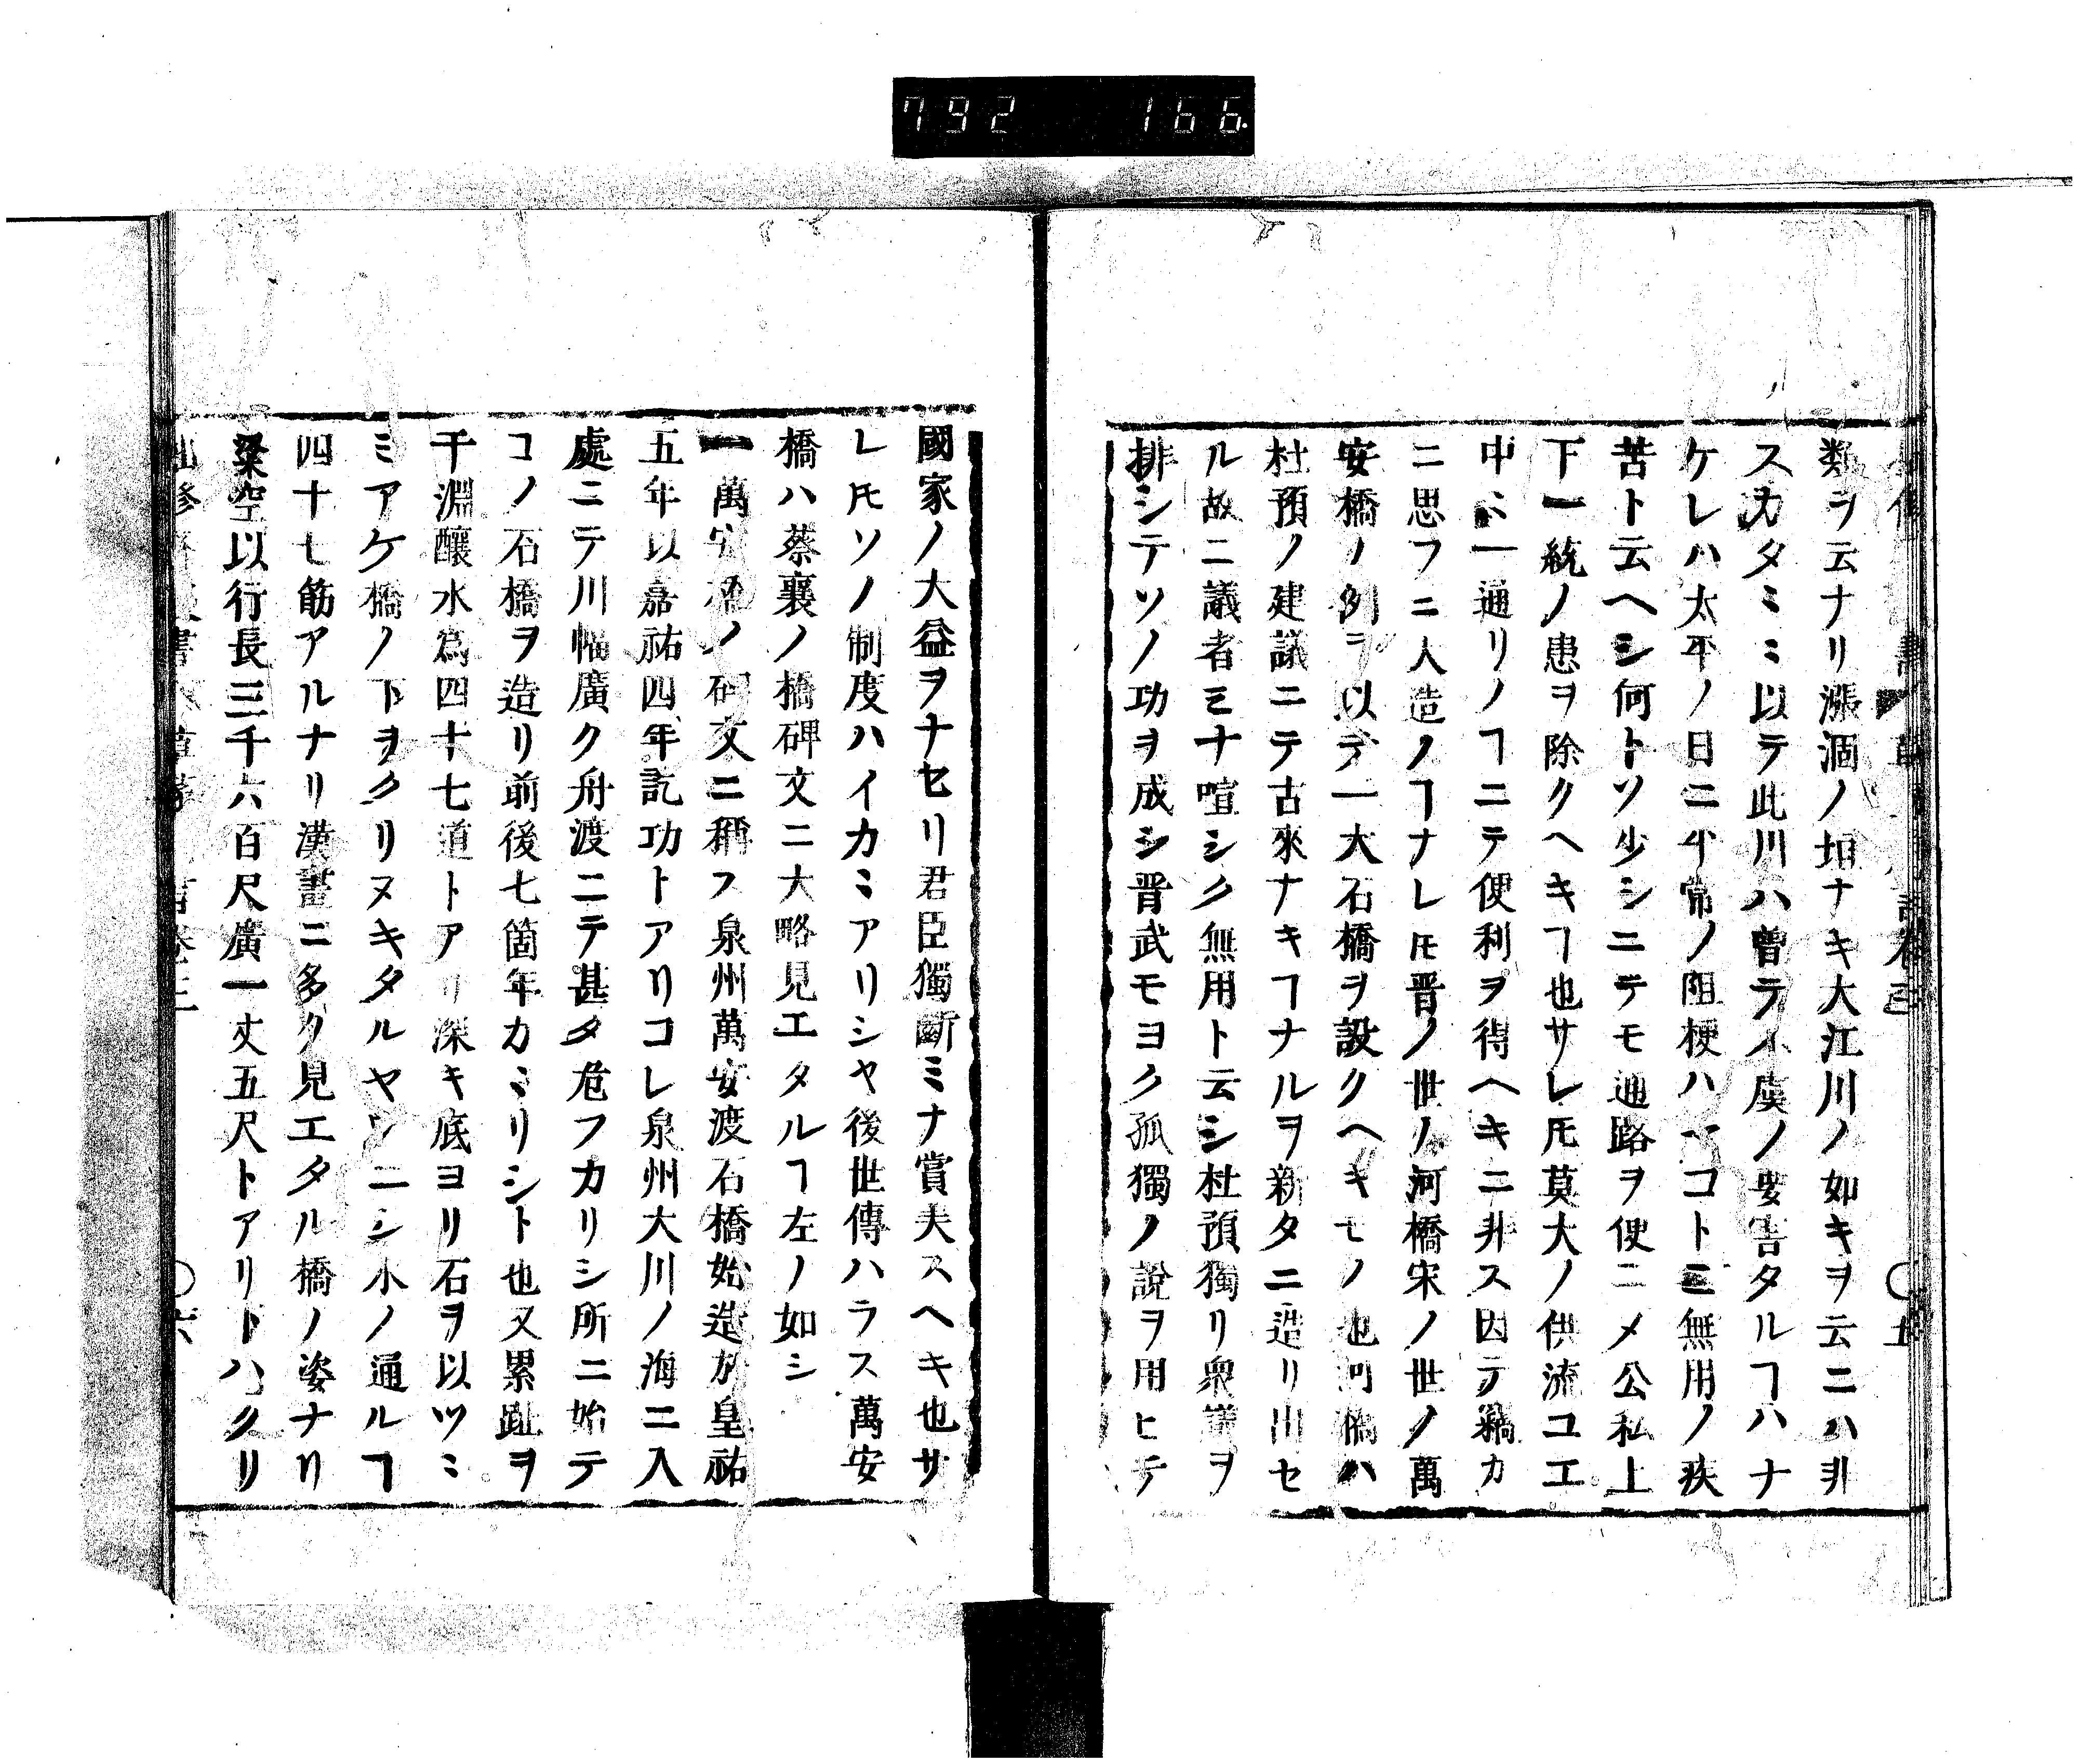 792 166
類ヲ云ナリ漲涸ノ垣ナキ大江川ノ如キヲ云ニハ非
スカタミミ以テ此川ハ曽テ不虞ノ要害タルヿハナ
ケレハ太平ノ日ニ平常ノ阻梗ハマコトニ無用ノ疾
苦ト云ヘシ何トソ少シニテモ通路ヲ便ニメ公私上
下一統ノ患ヲ除クヘキヿ也サレ𪜈莫大ノ供流ユエ
中ミ一通リノヿニテ便利ヲ得ヘキニ非ス因テ竊カ
ニ思フニ人造ノヿナレ𪜈晋ノ世ノ河橋宋ノ世ノ萬
安橋ノ例ヲ以テ一大石橋ヲ設クヘキモノ也河橋ハ
杜預ノ建議ニテ古來ナキヿナルヲ新タニ造リ出セ
ル故ニ議者ミナ喧シク無用ト云シ杜預獨リ衆議ヲ
排シテソノ功ヲ成シ晋武モヨク孤獨ノ說ヲ用ヒテ
國家ノ大益ヲナセリ君臣獨斷ミナ賞夫スヘキ也サ
レ𪜈ソノ制度ハイカミアリシヤ後世傳ハラス萬安
橋ハ蔡襄ノ橋碑文ニ大略見エタルヿ左ノ如シ
一萬安橋ノ碑文ニ稱フ泉州萬安渡石橋始造於皇祐
五年以嘉祐四年訖功トアリコレ泉州大川ノ海ニ入
處ニテ川幅廣ク舟渡ニテ甚タ危フカリシ所ニ始テ
コノ石橋ヲ造リ前後七箇年カミリシト也又累趾ヲ
于淵釀水爲四十七道トアリ深キ底ヨリ石ヲ以ツミ
ミアケ橋ノ下ヲクリヌキタルヤウニシ水ノ通ルヿ
四十七筋アルナリ漢畫ニ多ク見エタル橋ノ姿ナリ
梁空以行長三千六百尺廣一丈五尺トアリトハクリ